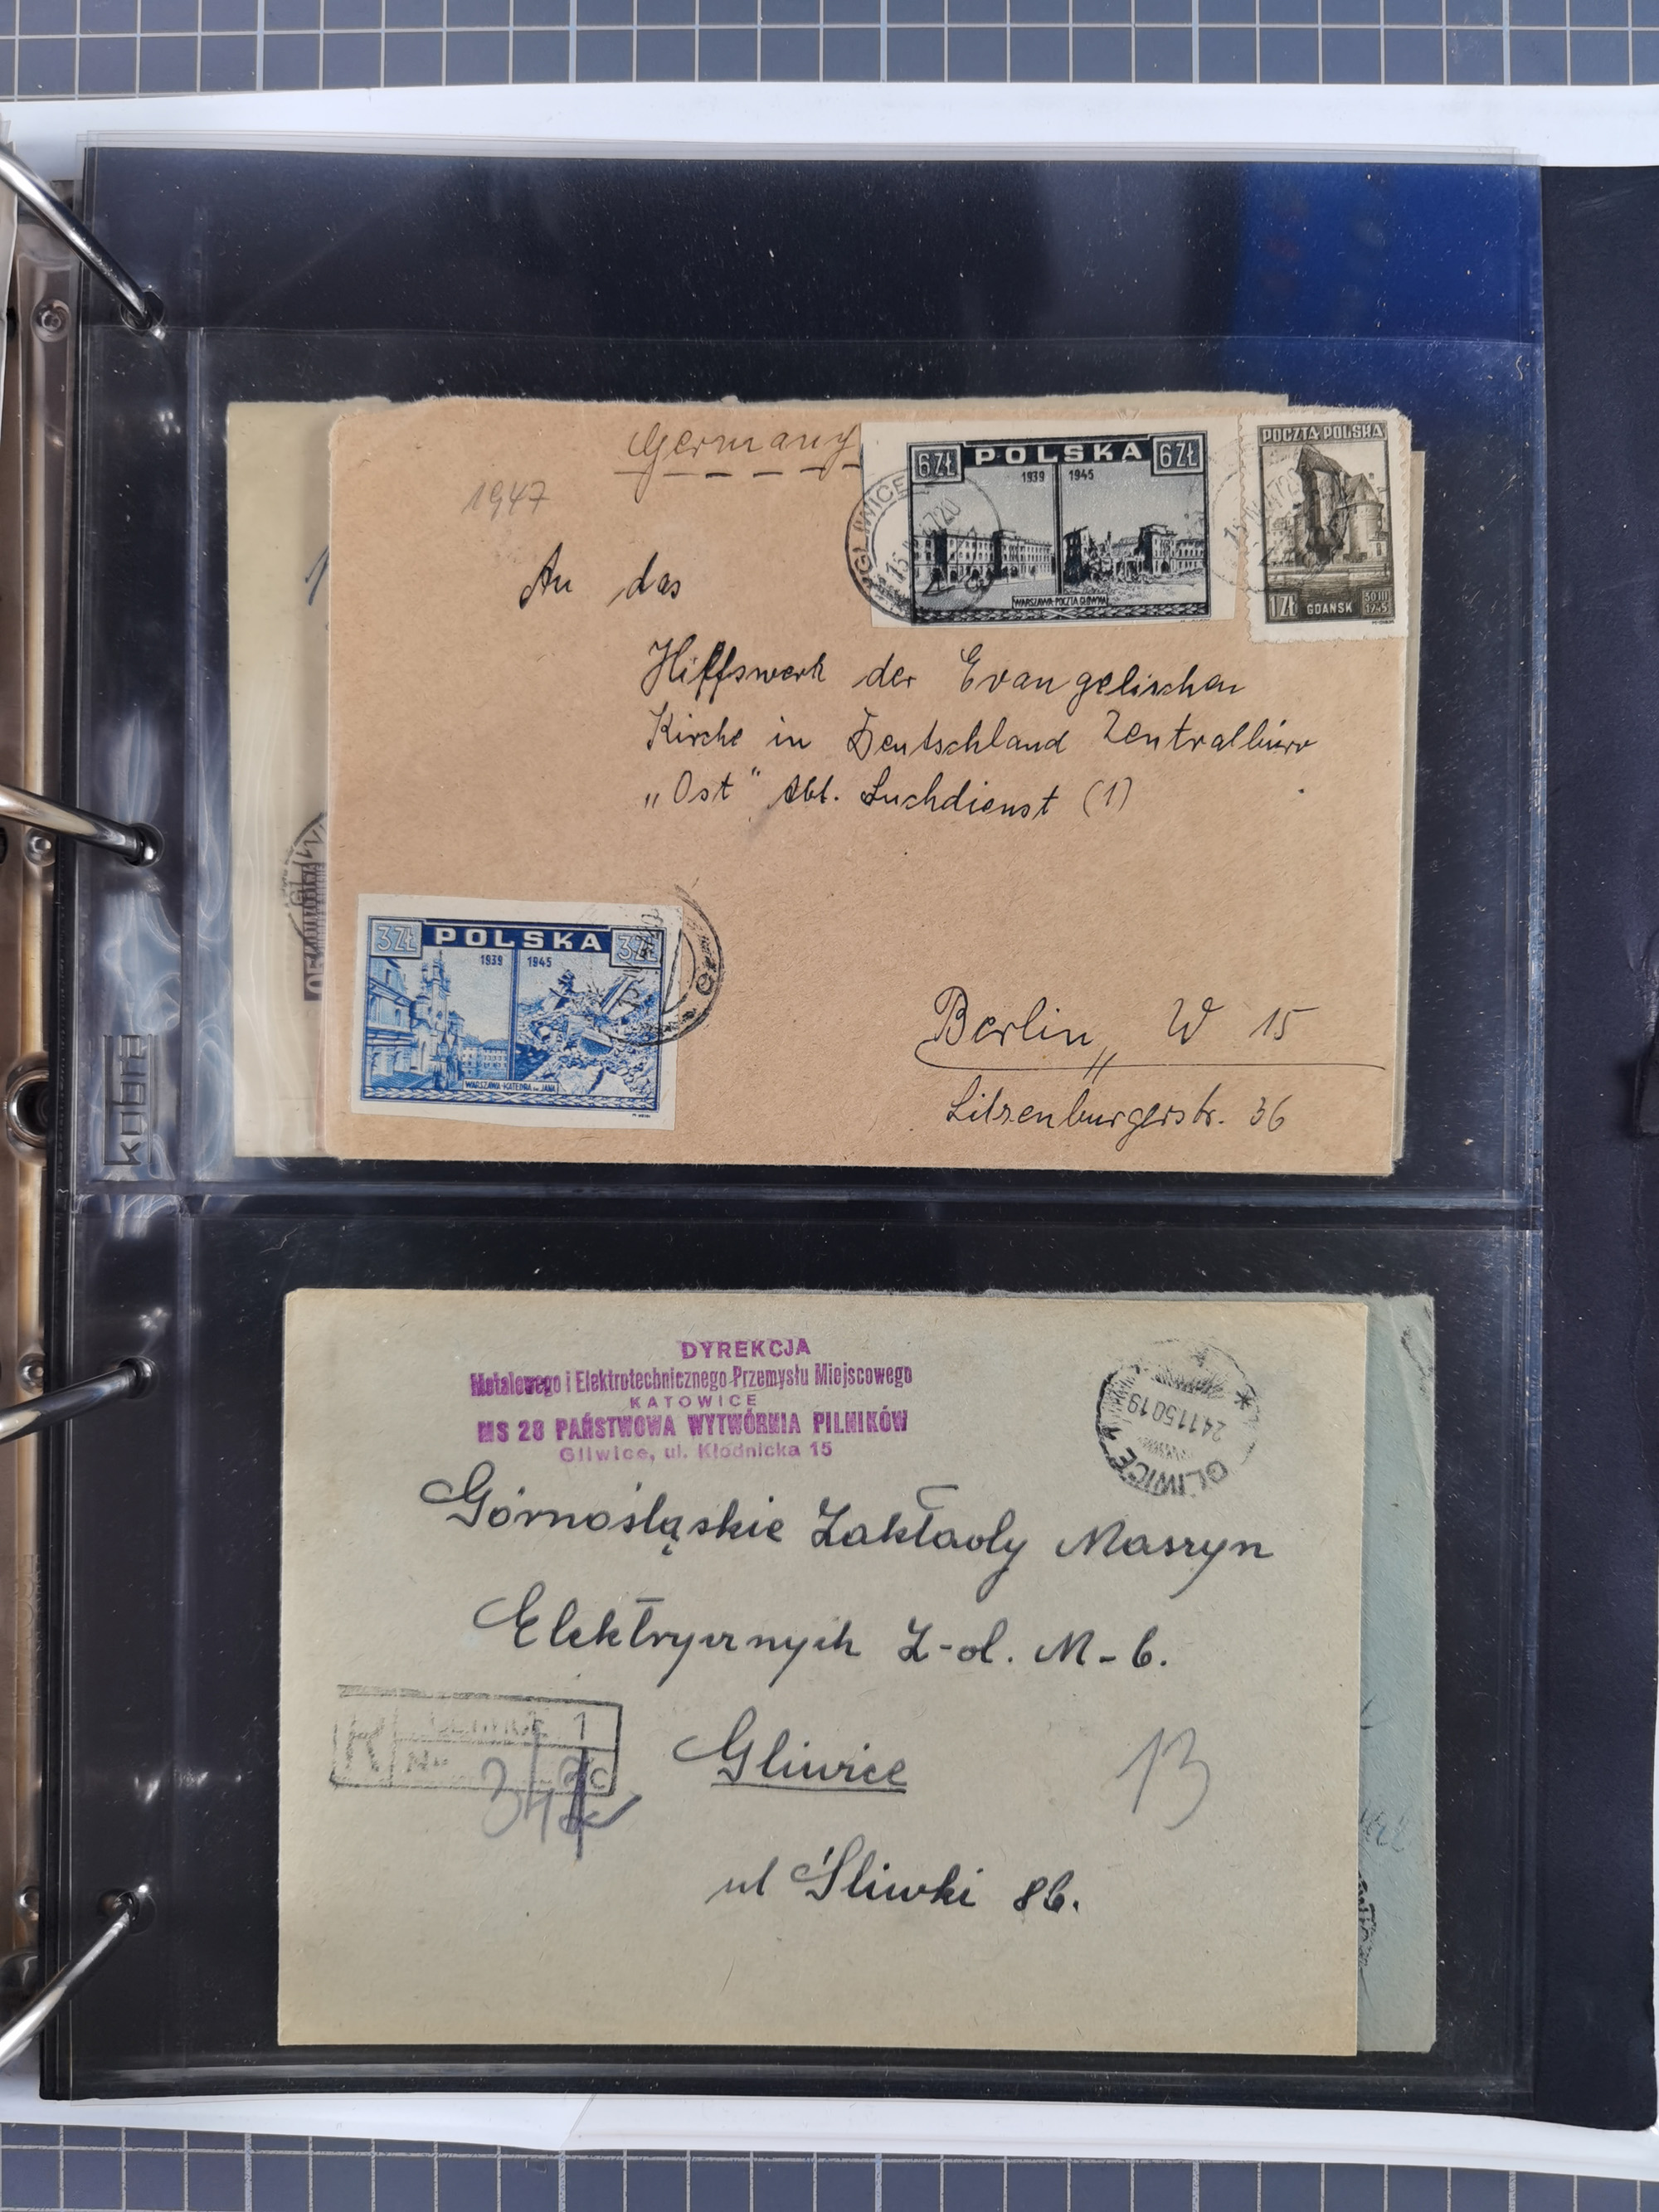 Germany
1947
6 ZŁ POLSKA 6 ZŁ
1939 1945
WARSZAWA-POCZTA GŁÓWNA
GLIWICE
POCZTA POLSKA
1 ZŁ GDAŃSK 30 III 1945
An das
Hilfswerk der Evangelischen
Kirche in Deutschland Zentralbüro
„Ost" Abt. Suchdienst (1)
3 ZŁ POLSKA 3 ZŁ
1939 1945
WARSZAWA-KATEDRA św. JANA
Berlin W 15
Litzenburgerstr. 36
kobra
DYREKCJA
Metalowego i Elektrotechnicznego Przemysłu Miejscowego
KATOWICE
MS 28 PAŃSTWOWA WYTWÓRNIA PILNIKÓW
Gliwice, ul. Kłodnicka 15
GLIWICE 1
24.11.50 19
Górnośląskie Zakłady Maszyn
Elektrycznych Z-d. M-6.
R GLIWICE 1
Nr
Gliwice
13
ul Śliwki 86.